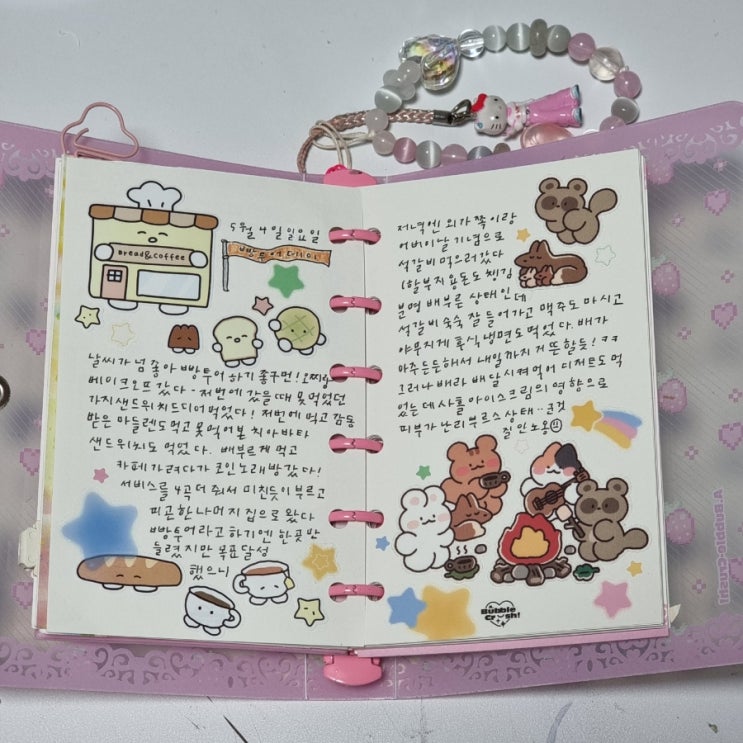 bread&coffee
5월 4일 일요일
빵투어 데이
날씨가 넘 좋아 빵투어하기 좋구먼! 오찌
베이크오프 갔다 - 저번에 갔을때 못먹었던
가지샌드위치드디어먹었다! 저번에 먹고 감동
받은 마들렌도먹고 못먹어본 치아바타
샌드위치도 먹었다. 배부르게 먹고
카페 가려다가 코인노래방갔다!
서비스를 4곡 더 줘서 미친듯이 부르고
피곤한 나머지 집으로 왔다
빵투어라고 하기에 한곳 반
들렸지만 목표달성
했으니
저녁엔 외가쪽이랑
어버이날 기념으로
석갈비 먹으러갔다
(할부지 용돈도 챙김
분명 배부른 상태인데
석갈비 쑥쑥 잘 들어가고 맥주도 마시고
야무지게 후식 냉면도 먹었다. 배가
아주든든해서 내일까지 저뜬할듯! ㅋㅋ
그러나 배라 배달시켜먹어 디저트도 먹
었는데 사흘 아이스크림의 영향으로
피부가 난리부르스 상태..
질 인노옹
Bubble
Crush!
A.Bubble-Crush!